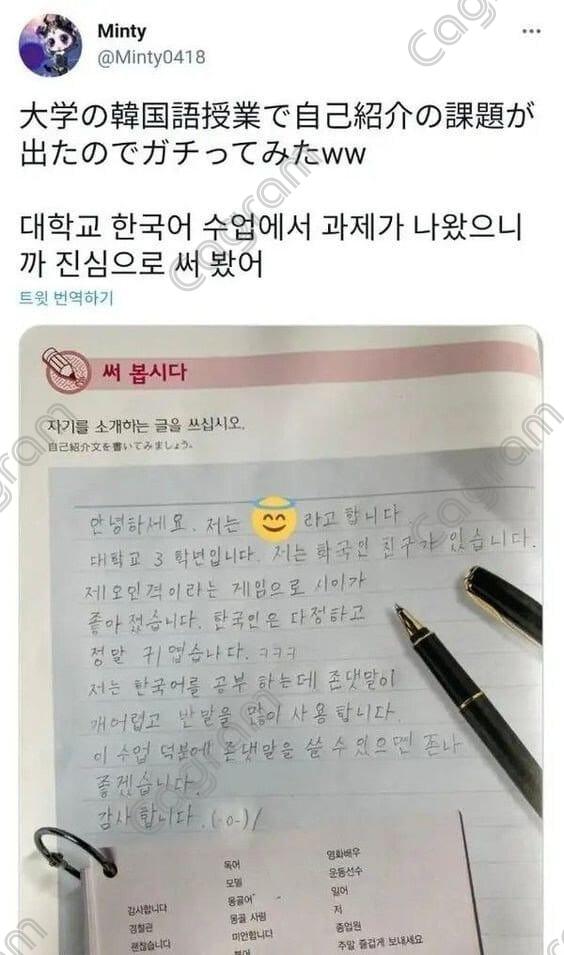 Minty
@Minty0418
大学の韓国語授業で自己紹介の課題が
出たのでガチってみたww
대학교 한국어 수업에서 과제가 나왔으니
까 진심으로 써 봤어
트윗 번역하기
써 봅시다
자기를 소개하는 글을 쓰십시오.
自己紹介文を書いてみましょう。
안녕하세요. 저는 😇 라고 합니다
대학교 3 학년입니다. 저는 화국인 친구가 있습니다.
제오인격이라는 게임으로 시이가
좋아졌습니다. 한국인은 다정하고
정말 귀엽습니다. ㅋㅋㅋ
저는 한국어를 공부 하는데 존댓말이
개어렵고 반말을 많이 사용합니다.
이 수업 덕분에 존댓말을 쓸 수 있으면 존나
좋겠습니다.
감사합니다.(-0-)/
감사합니다
경찰관
괜찮습니다
독어
모델
몽골어
몽골 사람
미안합니다
영화배우
운동선수
일어
저
종업원
주말 즐겁게 보내세요
Cagram